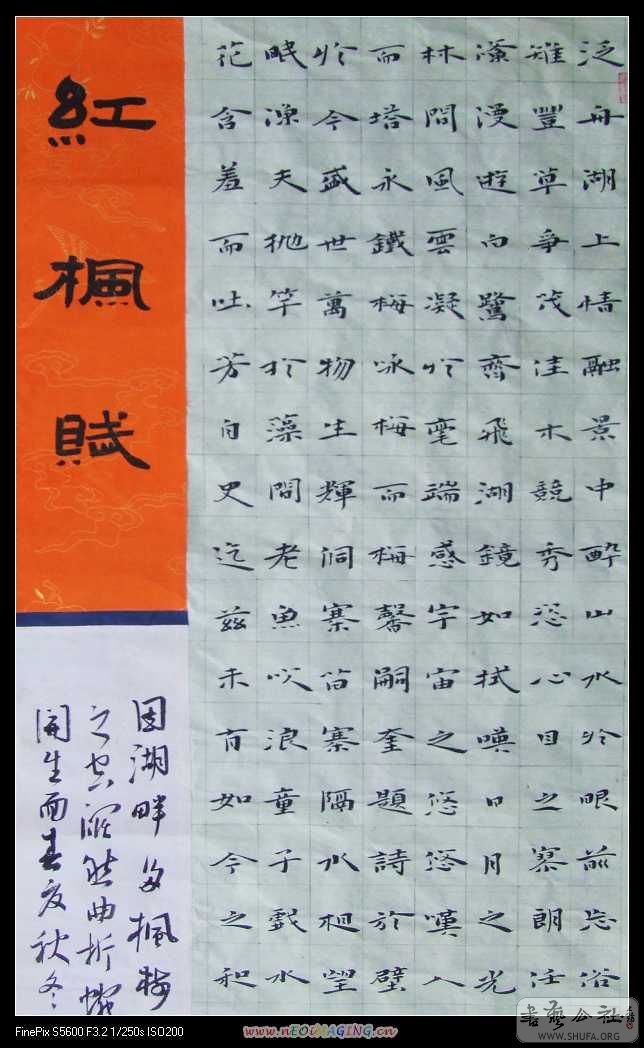 紅楓賦
泛舟湖上情融景中醉山水於眼前忘俗
雉豐草爭茂佳木競秀恣心目之寨朗任
濠漫遊白鷺齊飛湖鏡如拭嘆日月之光
林間風雲凝於毫端感宇宙之悠悠嘆人
而塔永鐵梅咏梅而梅馨嗣奎題詩於壁
於今盛世萬物生輝洞寨笛寨隔水相望
眠漁夫拋竿於藻間老魚吹浪童子戲水
花含羞而吐芳自史迄茲未有如今之和
因湖畔多楓樹
之空濛然曲折
開生面春夏秋冬
書藝公社
WWW.SHUFA.ORG
FinePix S5600 F3.2 1/250s ISO200
www.nEOiMAGiNG.cn